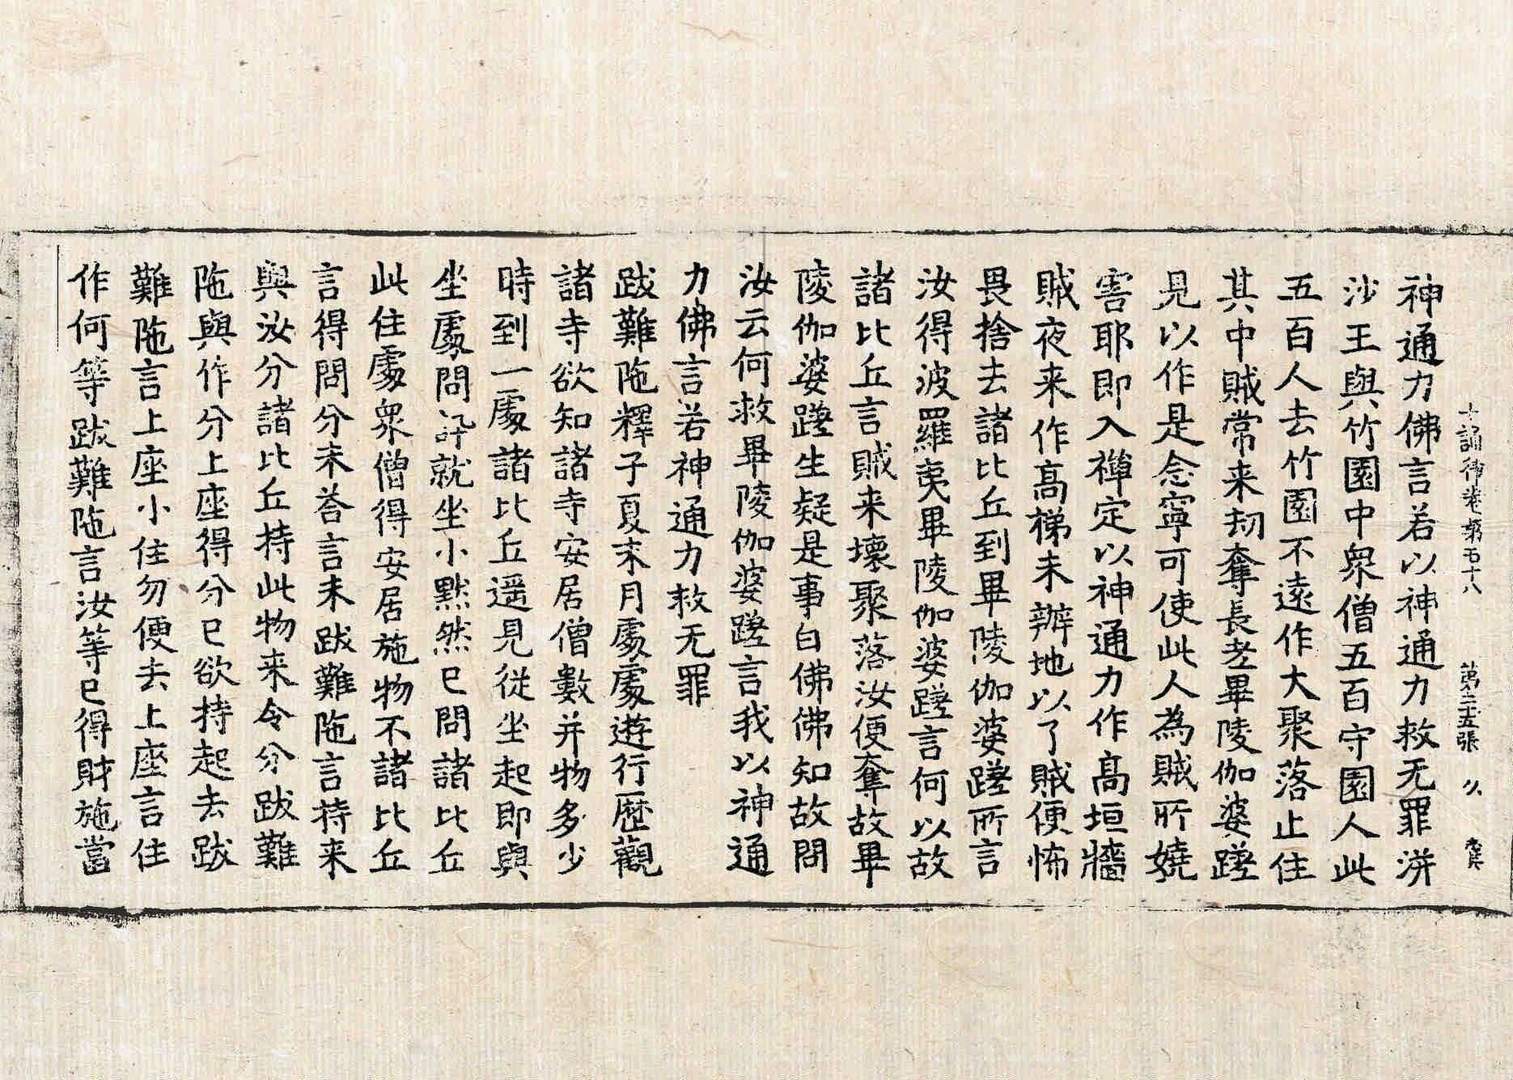 十誦律卷第五十八 第三五張 久
神通力佛言若以神通力救无罪洴
沙王與竹園中衆僧五百守園人此
五百人去竹園不遠作大聚落止住
其中賊常来刼奪長老畢陵伽婆蹉
見以作是念寧可使此人為賊所嬈
害耶即入禪定以神通力作高垣牆
賊夜来作高梯未辦地以了賊便怖
畏捨去諸比丘到畢陵伽婆蹉所言
汝得波羅夷畢陵伽婆蹉言何以故
諸比丘言賊来壞聚落汝便奪故畢
陵伽婆蹉生疑是事白佛佛知故問
汝云何救畢陵伽婆蹉言我以神通
力佛言若神通力救无罪
跋難陁釋子夏末月處處遊行歷觀
諸寺欲知諸寺安居僧數并物多少
時到一處諸比丘遥見從坐起即與
坐處問訊就坐小黙然已問諸比丘
此住處衆僧得安居施物不諸比丘
言得問分未荅言未跋難陁言持来
與汝分諸比丘持此物来令分跋難
陁與作分上座得分已欲持起去跋
難陁言上座小住勿便去上座言住
作何等跋難陁言汝等已得財施當